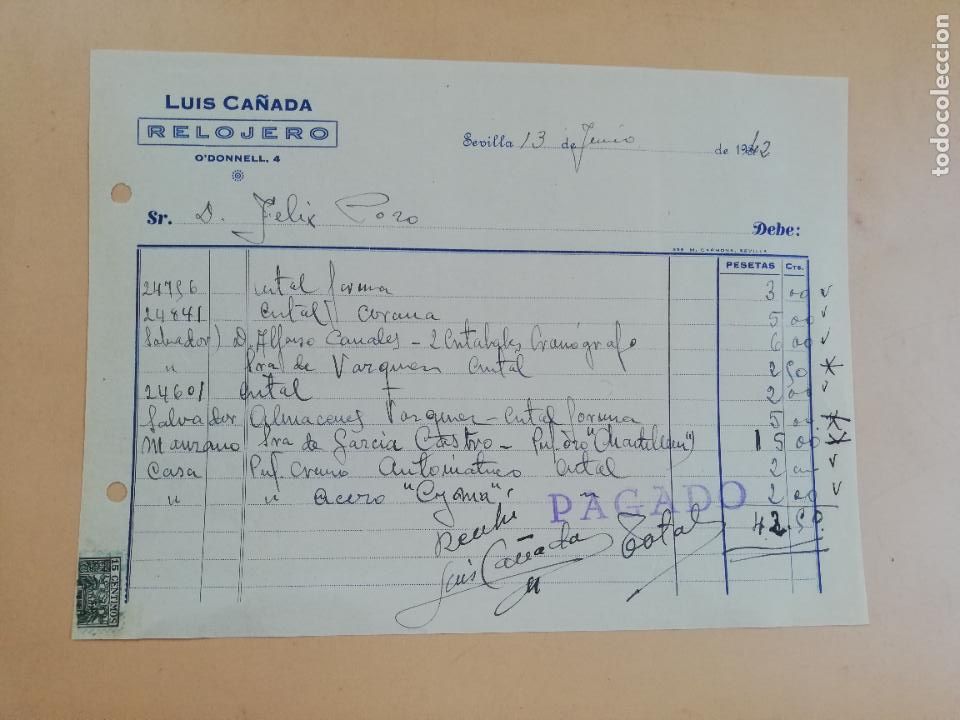 LUIS CAÑADA
RELOJERO
O'DONNELL, 4
Sevilla 13 de Junio de 1942
Sr. D. Felix Pozo
Debe:
M. CARMONA, SEVILLA
PESETAS CTS.
24796 cristal forma 3 00
24841 cristal corona 5 00
Salvador) D. Alfonso Canales - 2 cristales Cronógrafo 6 00
" Sra de Varquez cristal 2 50
24601 cristal 2 00
Salvador Almacenes Varquez - cristal forma 5 00
Manzano Sra de Garcia Castro - Pul. oro 15 00
Casa Pul. Crono Automatico cristal 2 00
" " acero "Cyma" " 2 00
PAGADO
Recibi Total 42.50
Luis Cañada
15 CENTIMOS
todocoleccion